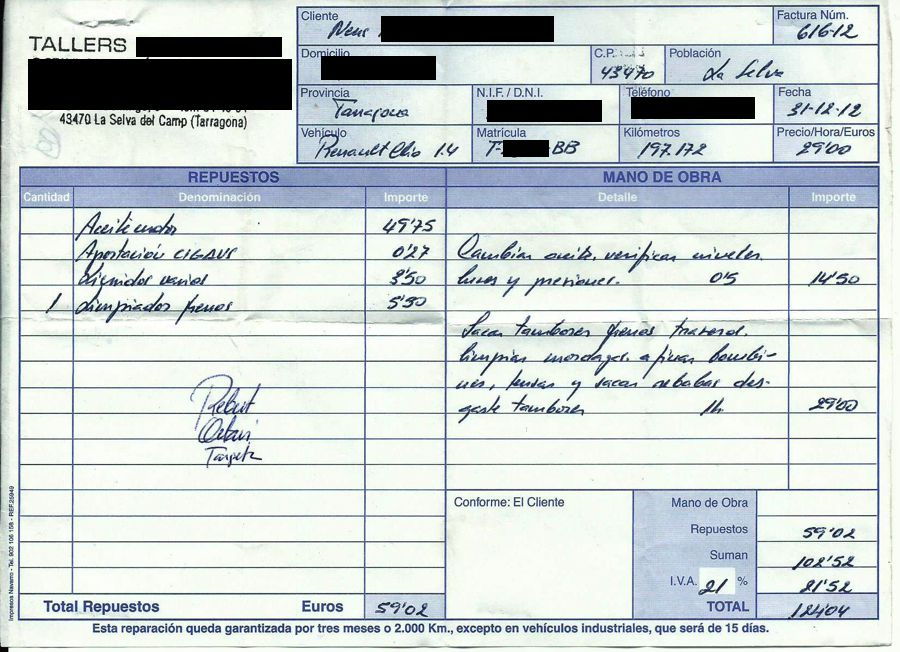 TALLERS
43470 La Selva del Camp (Tarragona)
Cliente
Neus
Factura Núm.
616-12
Domicilio
C.P.
43470
Población
La Selva
Provincia
Tarragona
N.I.F. / D.N.I.
Teléfono
Fecha
31-12-12
Vehículo
Renault Clio 1.4
Matrícula
T- BB
Kilómetros
197.172
Precio/Hora/Euros
29'00
REPUESTOS
MANO DE OBRA
Cantidad Denominación Importe
Detalle Importe
Aceite motor 49'75
Aportación SIGAUS 0'27
varios 3'50
1 Limpiador frenos
Cambiar aceite, verificar niveles
luces y presiones. 0'5 14'50
Sacar tambores frenos traseros.
limpiar mordazas.
y sacar rebabas des-
gaste tambores 1h 29'00
Rebut
Targeta
Conforme: El Cliente
Mano de Obra
Repuestos 59'02
Suman 102'52
I.V.A. 21 % 21'52
TOTAL 124'04
Total Repuestos Euros 59'02
Esta reparación queda garantizada por tres meses o 2.000 Km., excepto en vehículos industriales, que será de 15 días.
Impresos Navarro - Tel. 902 106 158 - REF.25949